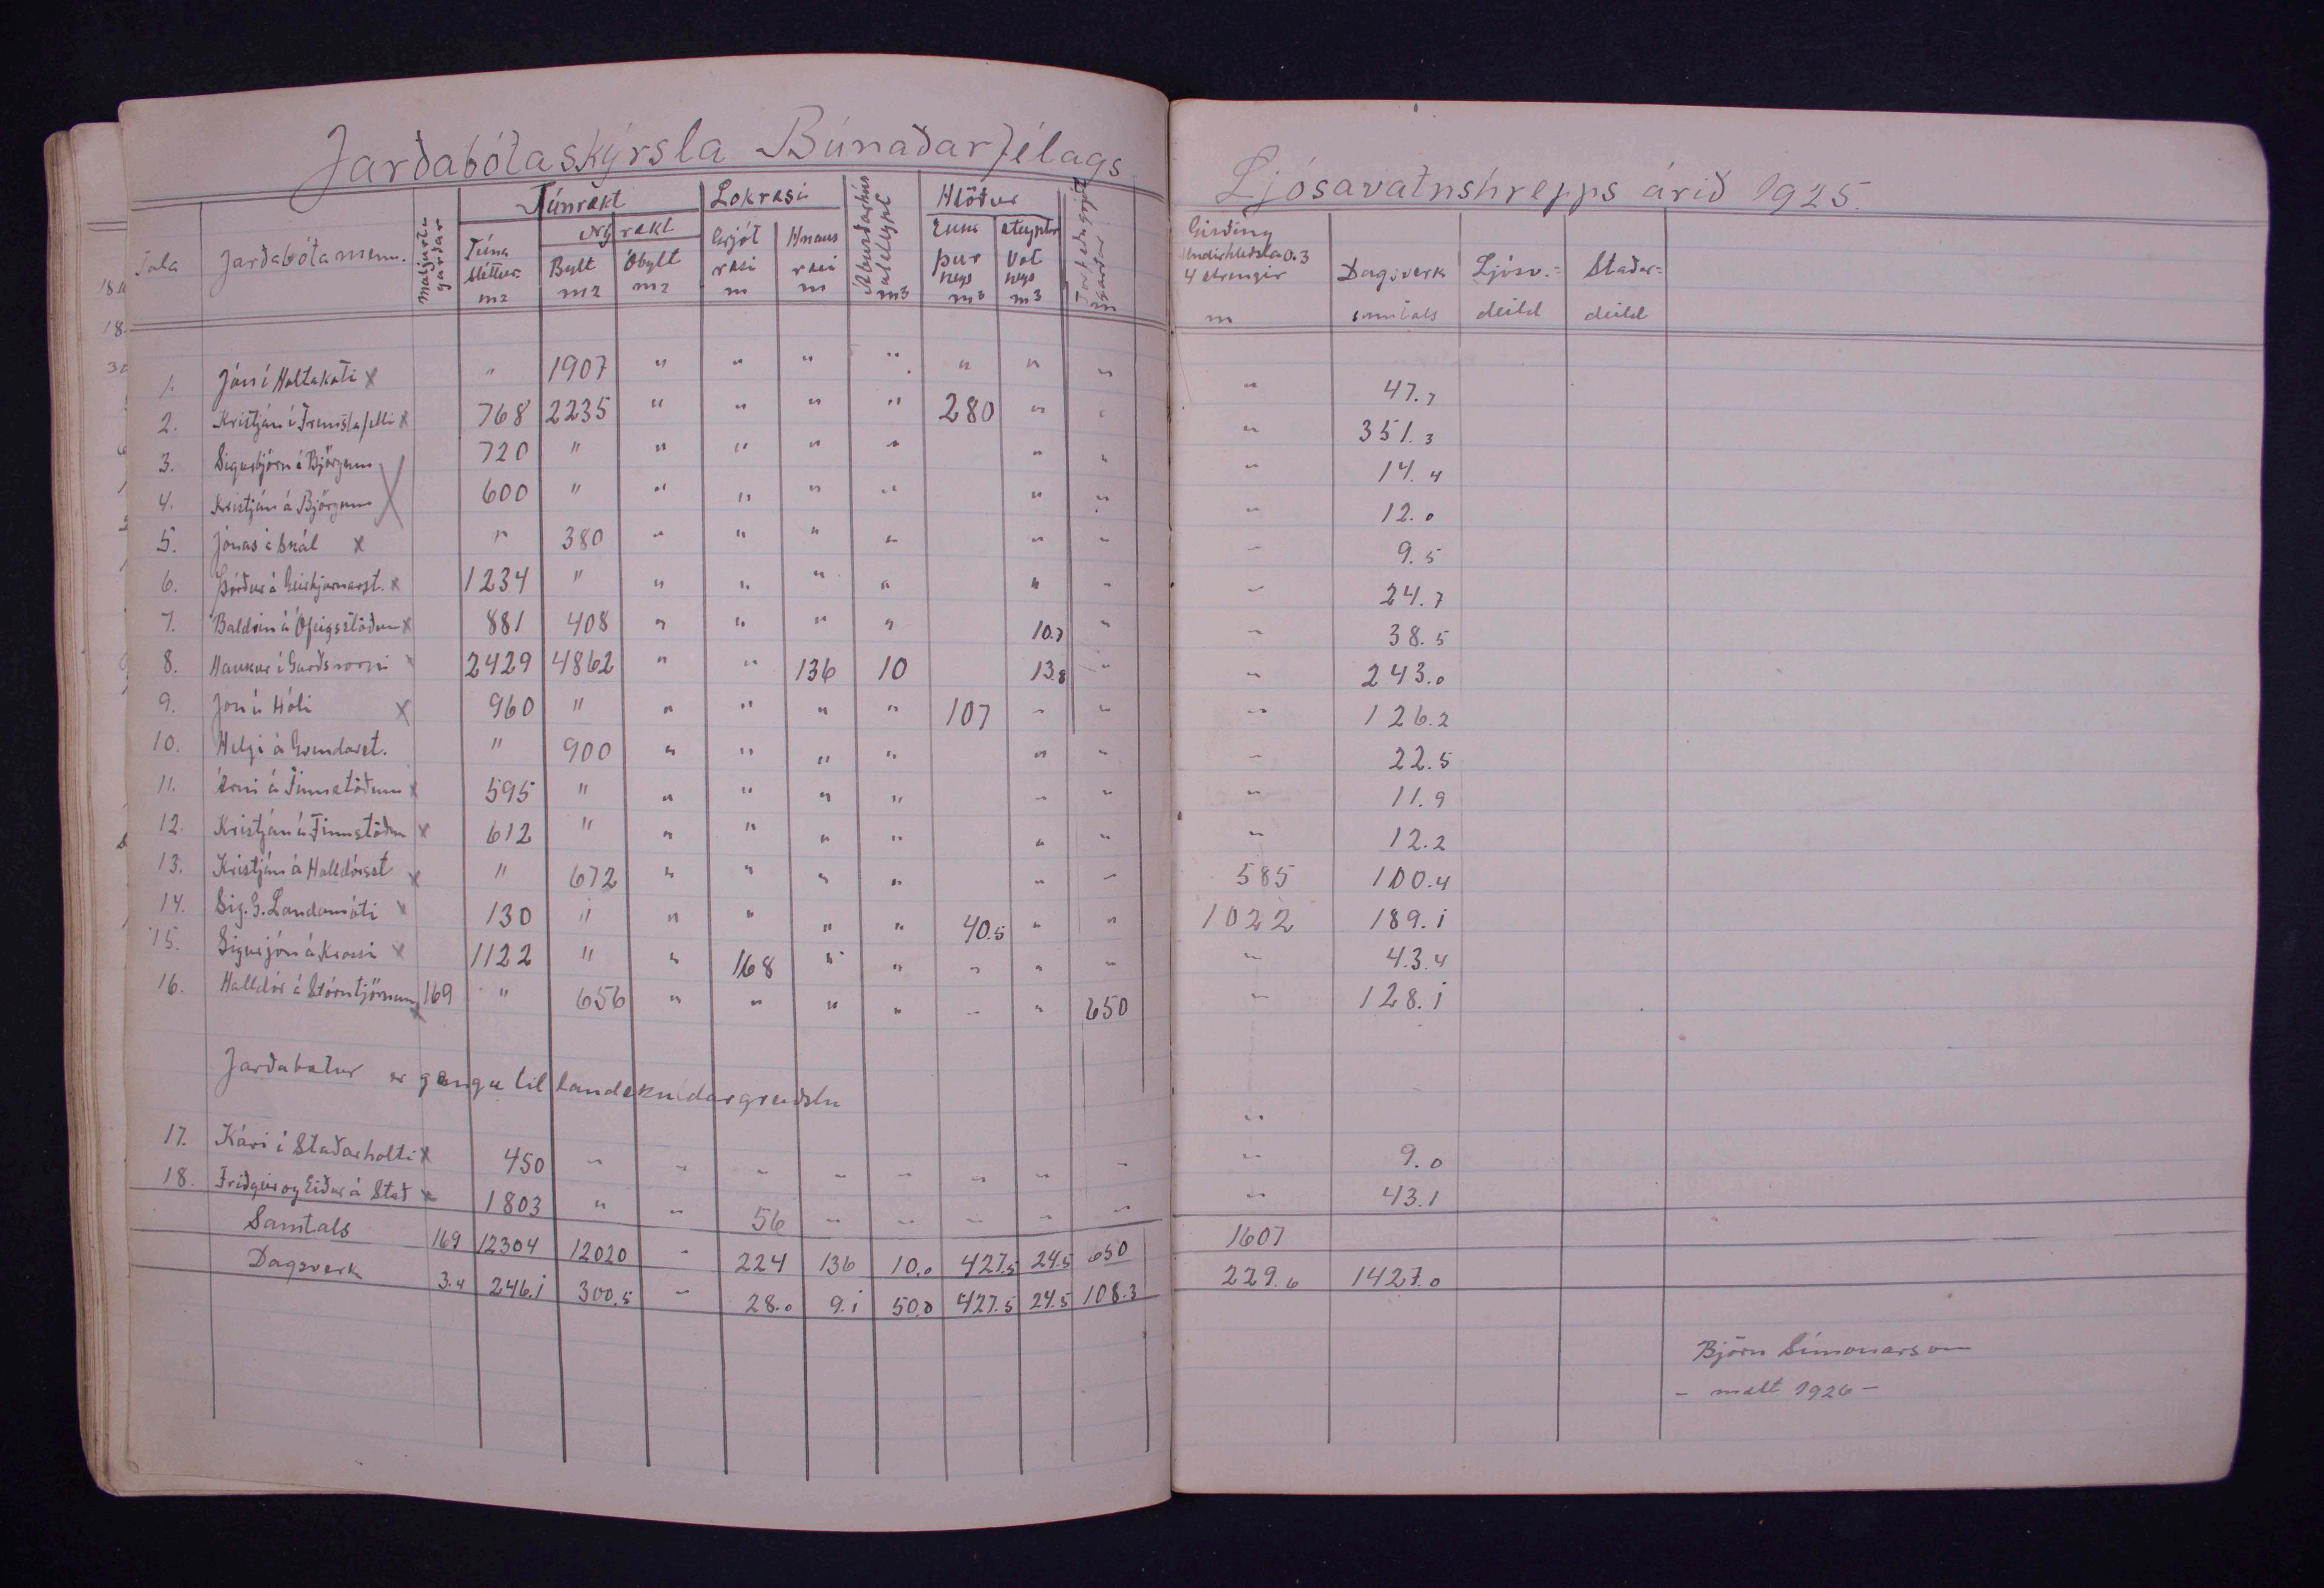 Jarðabótaskýrsla Búnaðarfélags
Ljósavatnshrepps árið 1925.
Tala Jarðabótamenn. Matjurta garðar Túnrækt Lokræsi Áburðarhús Hlöður
Nýrækt
Túna sléttur m2 Bylt m2 Óbylt m2 Grjót ræsi m Hnaus ræsi m m3 þur heys m3 steyptar Vot heys m3
Girðing Undirhleðsla 0.3 4 strengir m Dagsverk samtals Ljósv.= deild Staðar= deild
1. Jón í Holtakoti x " 1907 " " " " " " " " 47.7
2. Kristján í Fremstafelli x 768 2235 " " " " 280 " " " 351.3
3. Sigurbjörn á Björgum 720 " " " " " " " " 14.4
4. Kristján á Björgum 600 " " " " " " " " 12.0
5. Jónas í Skál x " 380 " " " " " " " 9.5
6. Þórður á Geirbjarnarst. x 1234 " " " " " " " " 24.7
7. Baldvin á Ófeigsstöðum x 881 408 " " " " 10.7 " " 38.5
8. Haukur í Garðshorni x 2429 4862 " " 136 10 13.8 " " 243.0
9. Jón á Hóli x 960 " " " " " 107 " " " 126.2
10. Helgi á Grundarst. " 900 " " " " " " " 22.5
11. Árni á Finnstöðum x 595 " " " " " " " " 11.9
12. Kristján á Finnstöðum x 612 " " " " " " " " 12.2
13. Kristján á Halldórsst x " 672 " " " " " " 585 100.4
14. Sig. G. Landamóti x 130 " " " " " 40.5 " " 1022 189.1
15. Sigurjón á Krossi x 1122 " " 168 " " " " " " 43.4
16. Halldór á Stórutjörnum x 169 " 656 " " " " " " 650 " 128.1
Jarðabætur er ganga til landskuldargreiðslu
17. Kári í Staðarholti x 450 " " " " " " " " " 9.0
18. Friðgeir og Eiður á Stað x 1803 " " 56 " " " " " " 43.1
Samtals 169 12304 12020 " 224 136 10.0 427.5 24.5 650 1607
Dagsverk 3.4 246.1 300.5 " 28.0 9.1 50.0 427.5 24.5 108.3 229.6 1427.0
Björn Símonarson
- mælt 1926 -